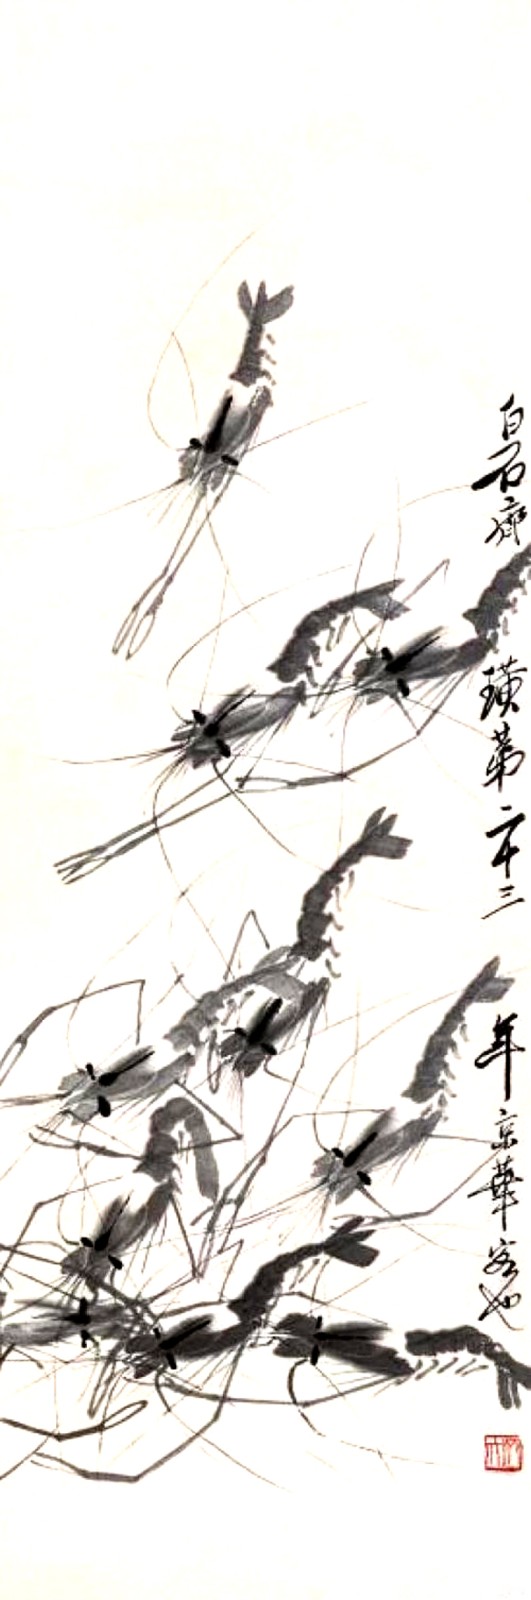 白石齊璜第二十三年京華客也